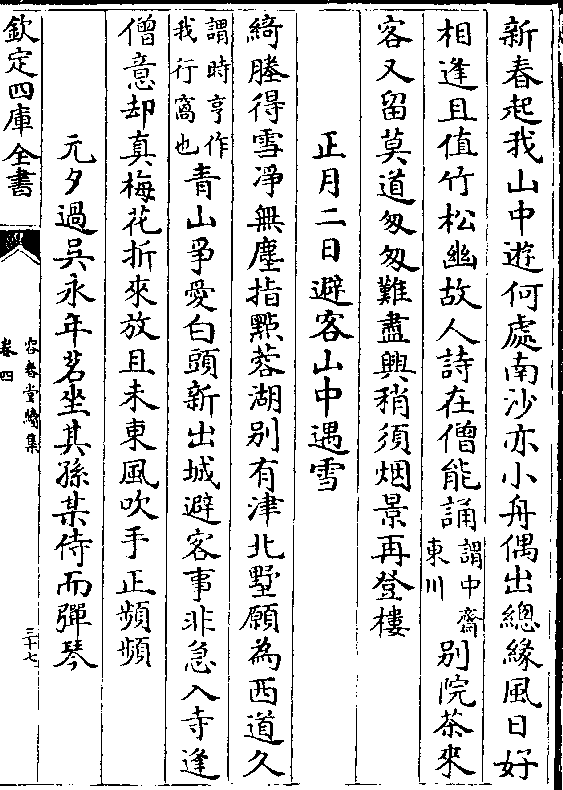 新春起我山中遊何處南沙亦小舟偶出總緣風日好
相逢且值竹松幽故人詩在僧能誦謂中齋東川別院茶來
客又留莫道匆匆難盡興稍須烟景再登樓
正月二日避客山中遇雪
綺塍得雪凈無塵指㸃蓉湖别有津北墅願為西道久
謂時亨作我行窩也青山爭愛白頭新出城避客事非急入寺逢
僧意却真梅花折來放且未東風吹手正頻頻
元夕過吳永年茗坐其孫某侍而彈琴
欽定四庫全書
容春堂續集
卷四
三十七